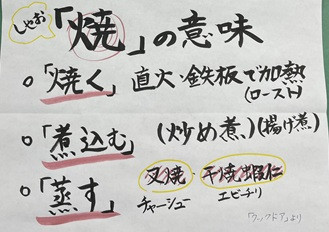 しゃお
「焼」の意味
○「焼く」直火・鉄板で加熱
(ロースト)
○「煮込む」(炒め煮)(揚げ煮)
○「蒸す」叉焼・干焼蝦仁
チャーシュー エビチリ
「ウィックドア」より